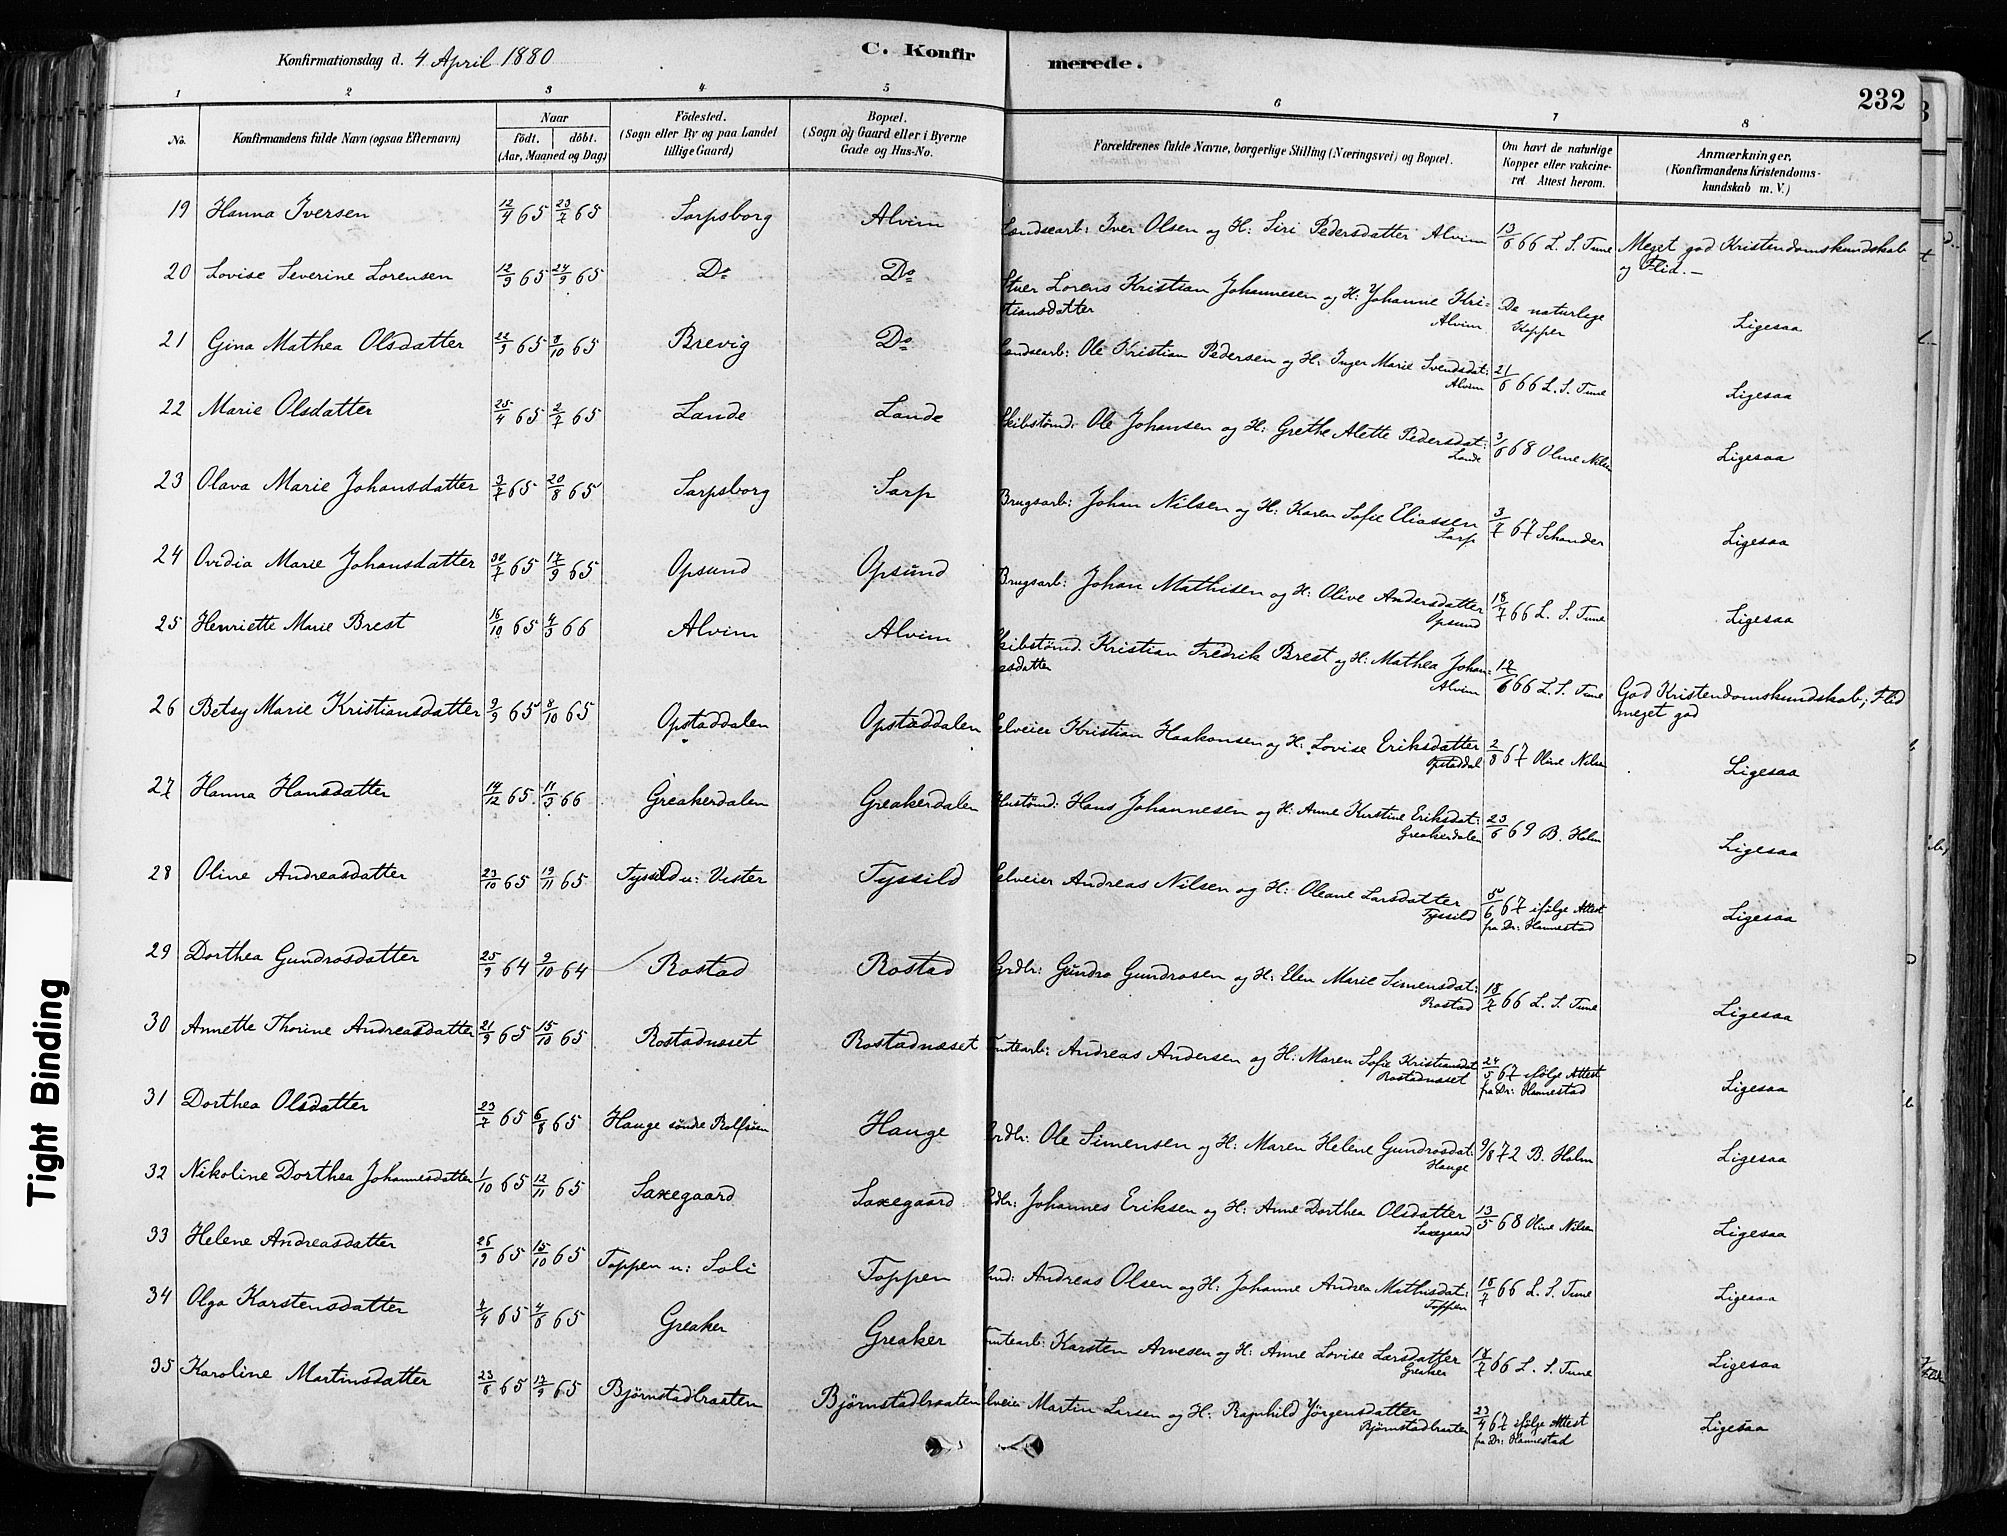 Konfirmationsdag d. 4 April 1880
C. Konfirmerede.
232
1 2 3 4 5 6 7 8
No. Konfirmandens fulde Navn (ogsaa Efternavn) Naar födt. döbt. (Aar, Maaned og Dag) Födested. (Sogn eller By og paa Landet tillige Gaard) Bopæl. (Sogn og Gaard eller i Byerne Gade og Hus-No. Forældrenes fulde Navne, borgerlige Stilling (Næringsvei) og Bopæl. Om havt de naturlige Kopper eller vakcineret Attest herom. Anmærkninger. (Konfirmandens Kristendomskundskab m. V.)
19 Hanna Iversen 12/4 65 23/7 65 Sarpsborg Alvim Landsearb: Iver Olsen og H: Siri Pedersdatter Alvim 13/6 66 L. S. Tune Meget god Kristendomskundskab og Flid.-
20 Lovise Severine Lorensen 12/9 65 24/9 65 Do Do Stuer Lorens Kristian Johannesen og H: Johanne Kristiansdatter Alvim De naturlige Kopper Ligesaa
21 Gina Mathea Olsdatter 22/9 65 8/10 65 Brevig Do Landsearb: Ole Kristian Pedersen og H: Inger Marie Svendsdat: Alvim 21/6 66 L. S. Tune Ligesaa
22 Marie Olsdatter 25/4 65 2/7 65 Lande Lande Skibstømd: Ole Johansen og H: Grethe Alette Pedersdat: Lande 3/6 68 Oline Nilsen Ligesaa
23 Olava Marie Johansdatter 3/7 65 20/8 65 Sarpsborg Sarp Brugsarb: Johan Nilsen og H: Karen Sofie Eliassen Sarp 3/7 67 Schander Ligesaa
24 Ovidia Marie Johansdatter 30/7 65 17/9 65 Opsund Opsund Brugsarb: Johan Mathisen og H: Olive Andersdatter Opsund 18/7 66 L. S. Tune Ligesaa
25 Henriette Marie Brest 16/10 65 4/3 66 Alvim Alvim Skibstømd. Kristian Fredrik Brest og H: Mathea Johansdatter Alvim 12/6 66 L. S. Tune God Kristendomskundskab; Flid meget god
26 Betsy Marie Kristiansdatter 9/9 65 8/10 65 Opstaddalen Opstaddalen Selveier Kristian Haakonsen og H. Lovise Eriksdatter Opstaddal 2/8 67 Oline Nilsen Ligesaa
27 Hanna Hansdatter 14/12 65 11/3 66 Greakerdalen Greakerdalen Hustømd: Hans Johannesen og H: Anne Kirstine Eriksdat: Greakerdalen 23/6 69 B. Holm Ligesaa
28 Oline Andreasdatter 23/10 65 19/11 65 Tyssild u: Vister Tyssild Selveier Andreas Nilsen og H: Oleane Larsdatter Tyssild 5/6 67 ifølge Attest fra Dr: Hannestad Ligesaa
29 Dorthea Gundrosdatter 25/9 64 9/10 64 Rostad Rostad Grdbr: Gundro Gundrosen og H: Elen Marie Simensdat: Rostad 18/7 66 L. S. Tune Ligesaa
30 Annette Thorine Andreasdatter 21/9 65 15/10 65 Rostadnæset Rostadnæset Andreas Andersen og H: Maren Sofie Kristiansdat Rostadnæset 24/5 67 ifølge Attest fra Dr: Hannestad Ligesaa
31 Dorthea Olsdatter 23/7 65 6/8 65 Hauge søndre Rolfsøen Hauge Grdbr: Ole Simensen og H: Maren Helene Gundrosdat: Hauge 9/8 72 B. Holm Ligesaa
32 Nikoline Dorthea Johannesdatter 1/10 65 12/11 65 Saxegaard Saxegaard Grdbr: Johannes Eriksen og H: Anne Dorthea Olsdatter Saxegaard 13/5 68 Oline Nilsen Ligesaa
33 Helene Andreasdatter 26/9 65 15/10 65 Toppen u: Soli Toppen Andreas Olsen og H: Johanne Andrea Mathisdat: Toppen 18/7 66 L. S. Tune Ligesaa
34 Olga Karstensdatter 2/4 65 4/6 65 Greaker Greaker Karsten Arvesen og H: Anne Lovise Larsdatter Greaker 18/7 66 L. S. Tune Ligesaa
35 Karoline Martinsdatter 23/8 65 17/9 65 Bjørnstadbraaten Bjørnstadbraaten Selveier Martin Larsen og H: Ragnhild Jörgensdatter Bjørnstadbraaten 23/4 67 ifølge Attest fra Dr: Hannestad Ligesaa
Tight Binding